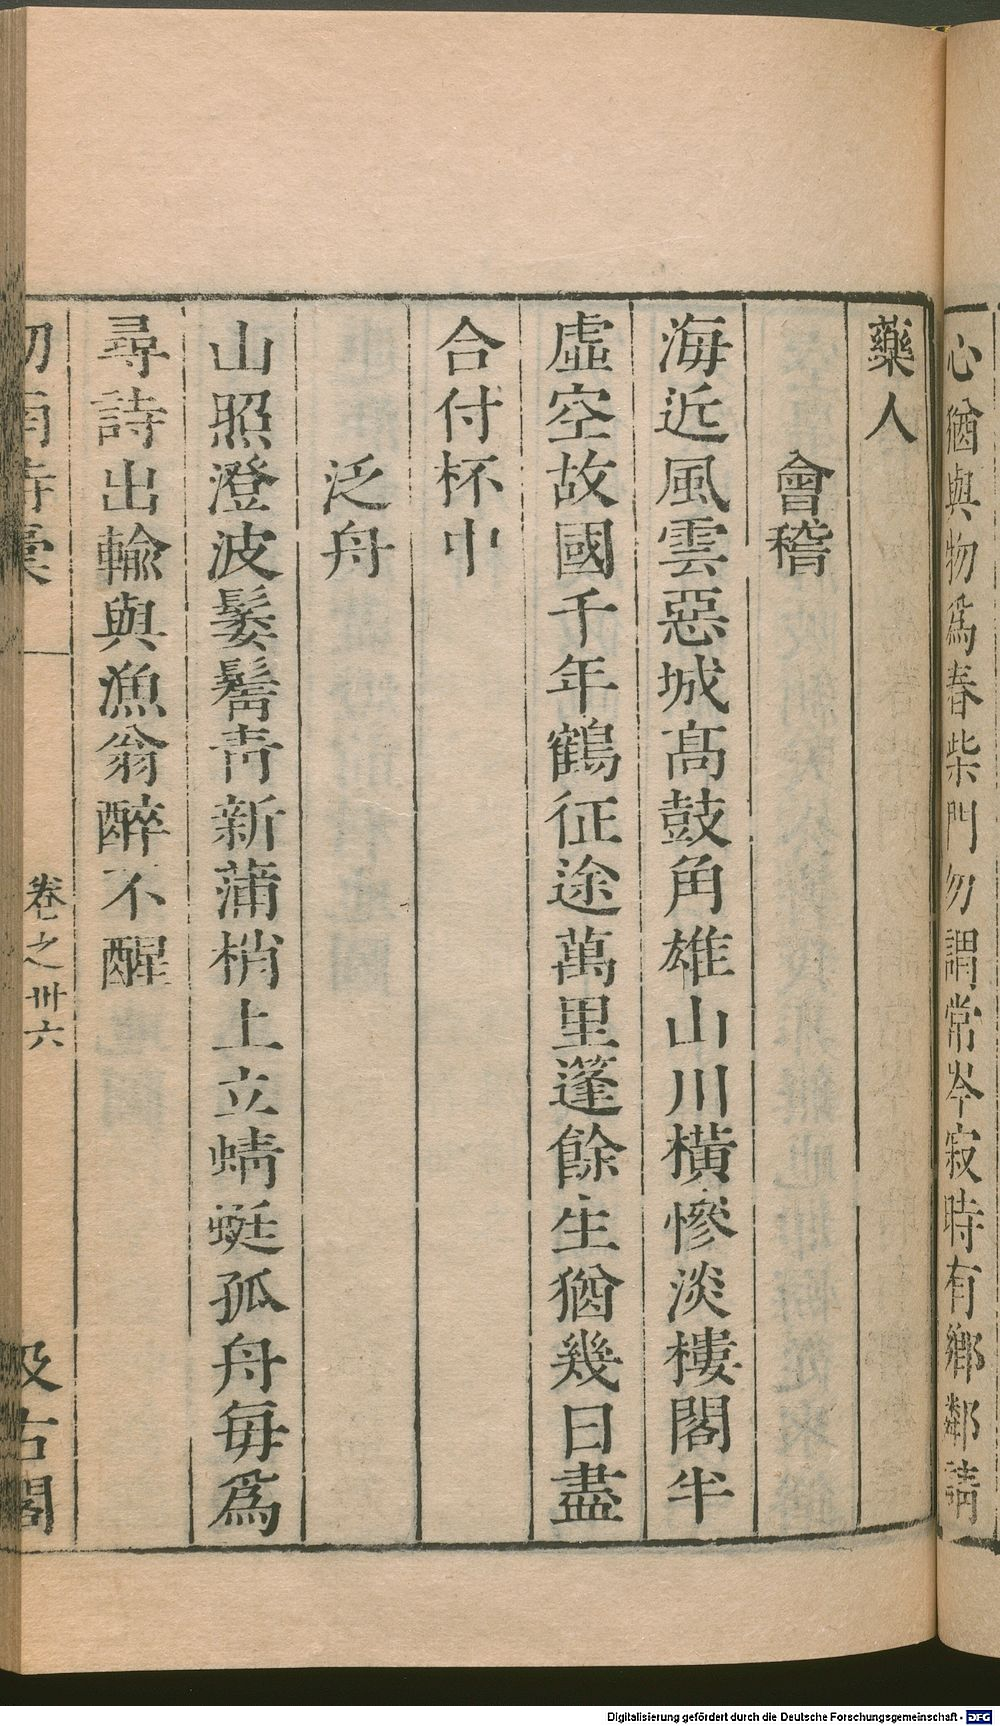 心猶與物爲春柴門勿謂常岑寂時有鄉鄰請
藥人
會稽
海近風雲惡城髙鼓角雄山川橫慘淡樓閣半
虛空故國千年鶴征途萬里蓬餘生猶幾日盡
合付杯中
泛舟
山照澄波鬖髿靑新蒲梢上立蜻蜓孤舟每爲
尋詩出輸與漁翁醉不醒
卷七之卅六
汲古閣
Digitalisierung gefördert durch die Deutsche Forschungsgemeinschaft - DFG